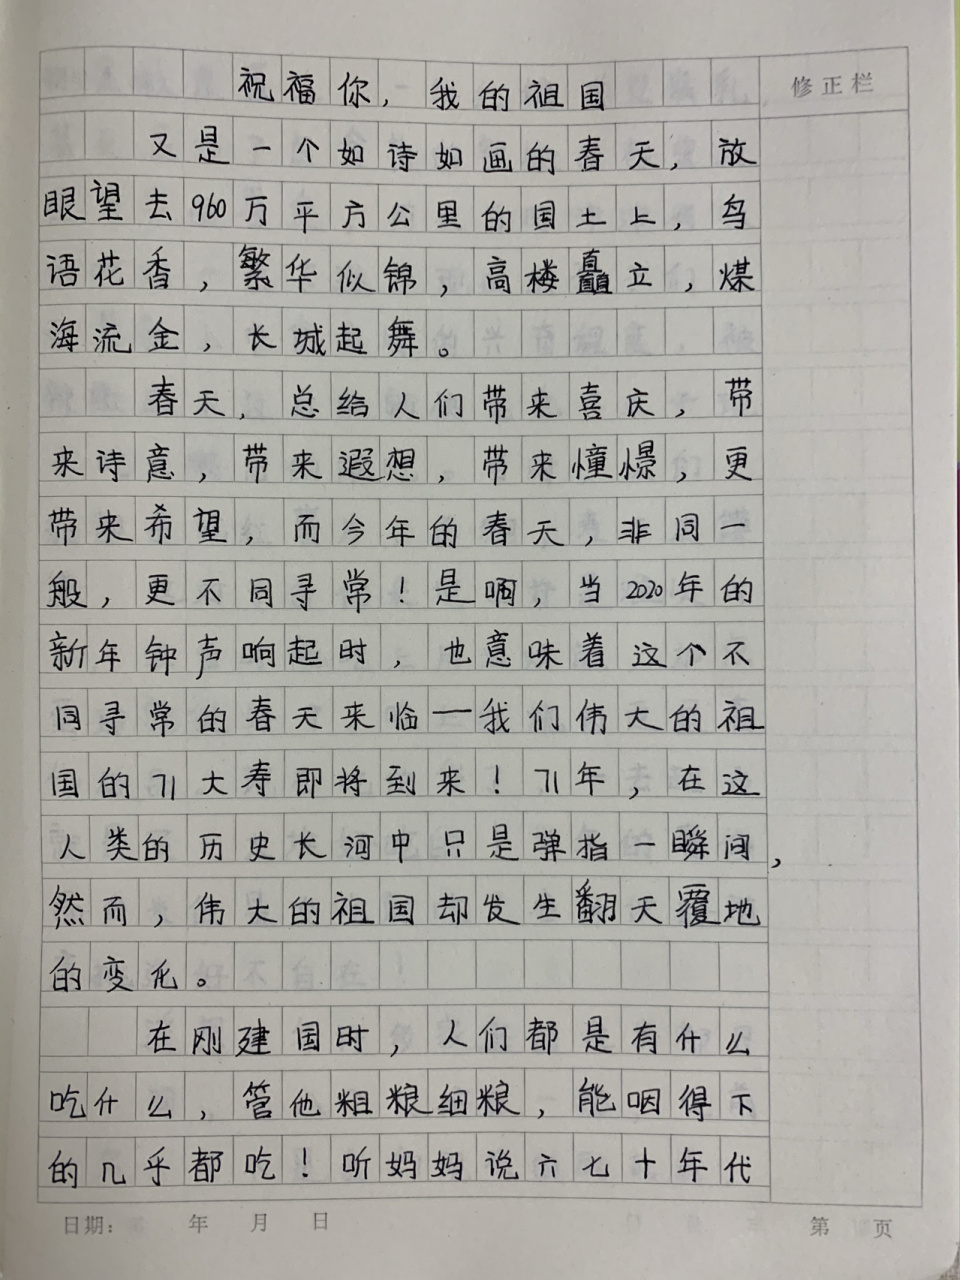 祝福你，我的祖国
修正栏
又是一个如诗如画的春天，放
眼望去960万平方公里的国土上，鸟
语花香，繁华似锦，高楼矗立，煤
海流金，长城起舞。
春天，总给人们带来喜庆，带
来诗意，带来遐想，带来憧憬，更
带来希望，而今年的春天，非同一
般，更不同寻常！是啊，当2020年的
新年钟声响起时，也意味着这个不
同寻常的春天来临一我们伟大的祖
国的71大寿即将到来！71年，在这
人类的历史长河中只是弹指一瞬间，
然而，伟大的祖国却发生翻天覆地
的变化。
在刚建国时，人们都是有什么
吃什么，管他粗粮细粮，能咽得下
的几乎都吃！听妈妈说六七十年代
日期： 年 月 日 第 页